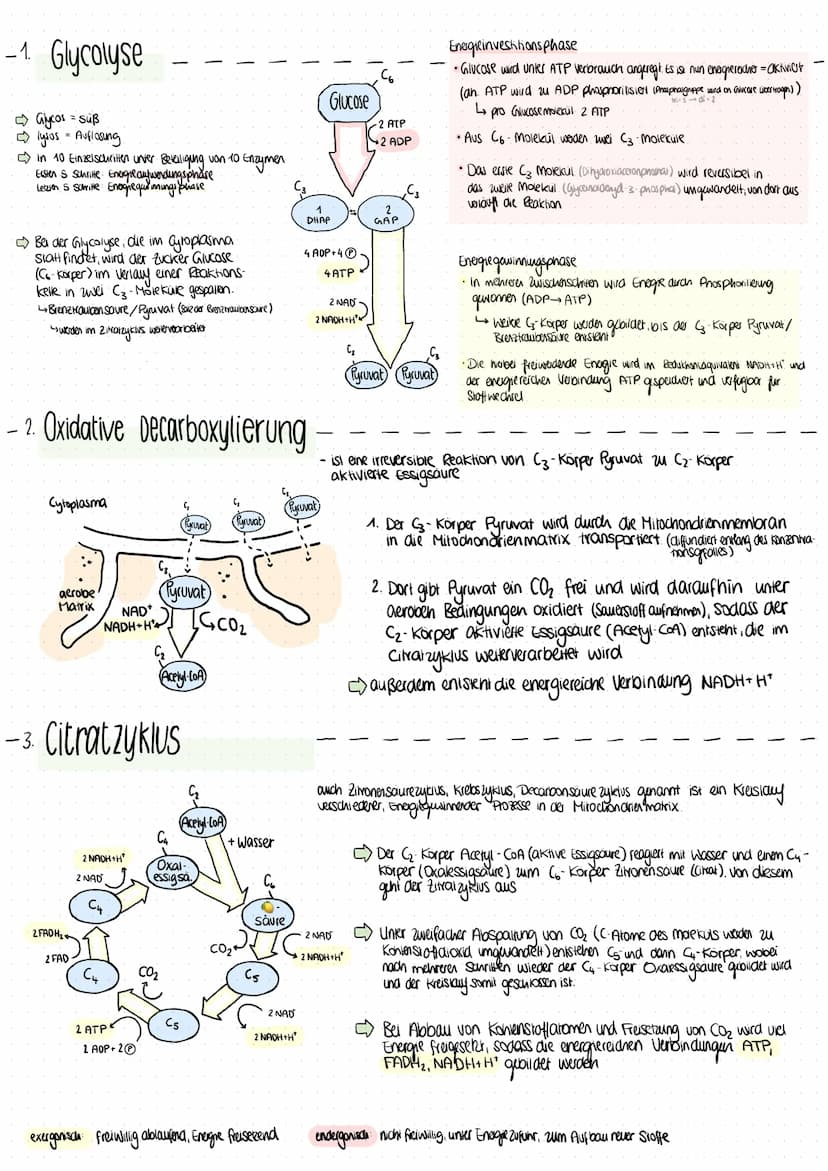 1. Glycolyse
⇨ Glycos = süß
⇨ lysos = Auflösung
⇨ In 10 Einzelschritten unter Beteiligung von 10 Enzymen
Ersten 5 Schritte: Energieaufwendungsphase
Letzten 5 Schritte: Energiegewinnungsphase
⇨ Bei der Glycolyse, die im Cytoplasma
stattfindet, wird der Zucker Glucose
(C6-Körper) im Verlauf einer Reaktions-
kette in zwei C3-Moleküle gespalten.
↳ Brenztraubensäure/Pyruvat (Salz der Brenztraubensäure)
↳ werden im Zitratzyklus weiterverarbeitet
C6
Glucose
2 ATP
2 ADP
C3
C3
1
DHAP
2
GAP
4 ADP+4 P
4 ATP
2 NAD+
2 NADH+H+
C3
C3
Pyruvat
Pyruvat
Energieinvestitionsphase
• Glucose wird unter ATP Verbrauch angeregt. Es ist nun energiereicher = aktiviert
(an. ATP wird zu ADP phosphorilisiert (Phosphatgruppe wird an Glucose übertragen))
↳ pro Glucosemolekül 2 ATP
• Aus C6-Molekül werden zwei C3-Moleküle
• Das erste C3 Molekül (Dihydroxiacetonphosphat) wird reversibel in
das zweite Molekül (Glycerinaldehyd-3-phosphat) umgewandelt, von dort aus
verläuft die Reaktion
Energiegewinnungsphase
• In mehreren Zwischenschritten wird Energie durch Phosphorilierung
gewonnen (ADP→ATP)
↳ Weitere C3-Körper werden gebildet, bis der C3-Körper Pyruvat/
Brenztraubensäure entsteht
• Die hierbei freiwerdende Energie wird im Reduktionsäquivalent NADH+H+ und
der energiereichen Verbindung ATP gespeichert und verfügbar für
Stoffwechsel
2. Oxidative Decarboxylierung
- ist eine irreversible Reaktion von C3-Körper Pyruvat zu C2-Körper
aktivierte Essigsäure
Cytoplasma
C3
Pyruvat
C3
Pyruvat
C3
Pyruvat
aerobe
Matrix
C3
Pyruvat
NAD+
NADH+H+
CO2
C2
Acetyl-CoA
1. Der C3-Körper Pyruvat wird durch die Mitochondrienmembran
in die Mitochondrienmatrix transportiert (diffundiert entlang des Konzentra-
tionsgefälles)
2. Dort gibt Pyruvat ein CO2 frei und wird daraufhin unter
aeroben Bedingungen oxidiert (Sauerstoff aufnehmen), sodass der
C2-Körper aktivierte Essigsäure (Acetyl-CoA) entsteht, die im
Citratzyklus weiterverarbeitet wird
⇨ außerdem entsteht die energiereiche Verbindung NADH+H+
3. Citratzyklus
auch Zitronensäurezyklus, Krebszyklus, genannt ist ein Kreislauf
verschiedener, Energiegewinnender Prozesse in der Mitochondrienmatrix.
C2
Acetyl-CoA
+ Wasser
C4
Oxal-
essigsä.
C6
säure
2 NAD+
2 NADH+H+
CO2
C5
2 NAD+
2 NADH+H+
C5
CO2
2 ATP
2 ADP+2 P
C4
2 FADH2
2 FAD
C4
2 NADH+H+
2 NAD+
⇨ Der C2-Körper Acetyl-CoA (aktive Essigsäure) reagiert mit Wasser und einem C4-
Körper (Oxalessigsäure) zum C6-Körper Zitronensäure (Citrat). von diesem
geht der Zitratzyklus aus
⇨ Unter zweifacher Abspaltung von CO2 (C-Atome des Moleküls werden zu
Kohlenstoffdioxid umgewandelt) entstehen C5 und dann C4-Körper, wobei
nach mehreren Schritten wieder der C4-Körper Oxalessigsäure gebildet wird
und der Kreislauf somit geschlossen ist.
⇨ Bei Abbau von Kohlenstoffatomen und Freisetzung von CO2 wird viel
Energie freigesetzt, sodass die energiereichen Verbindungen ATP,
FADH2, NADH+H+ gebildet werden
exergonisch: freiwillig ablaufend, Energie freisetzend
endergonisch: nicht freiwillig, unter Energiezufuhr, zum Aufbau neuer Stoffe